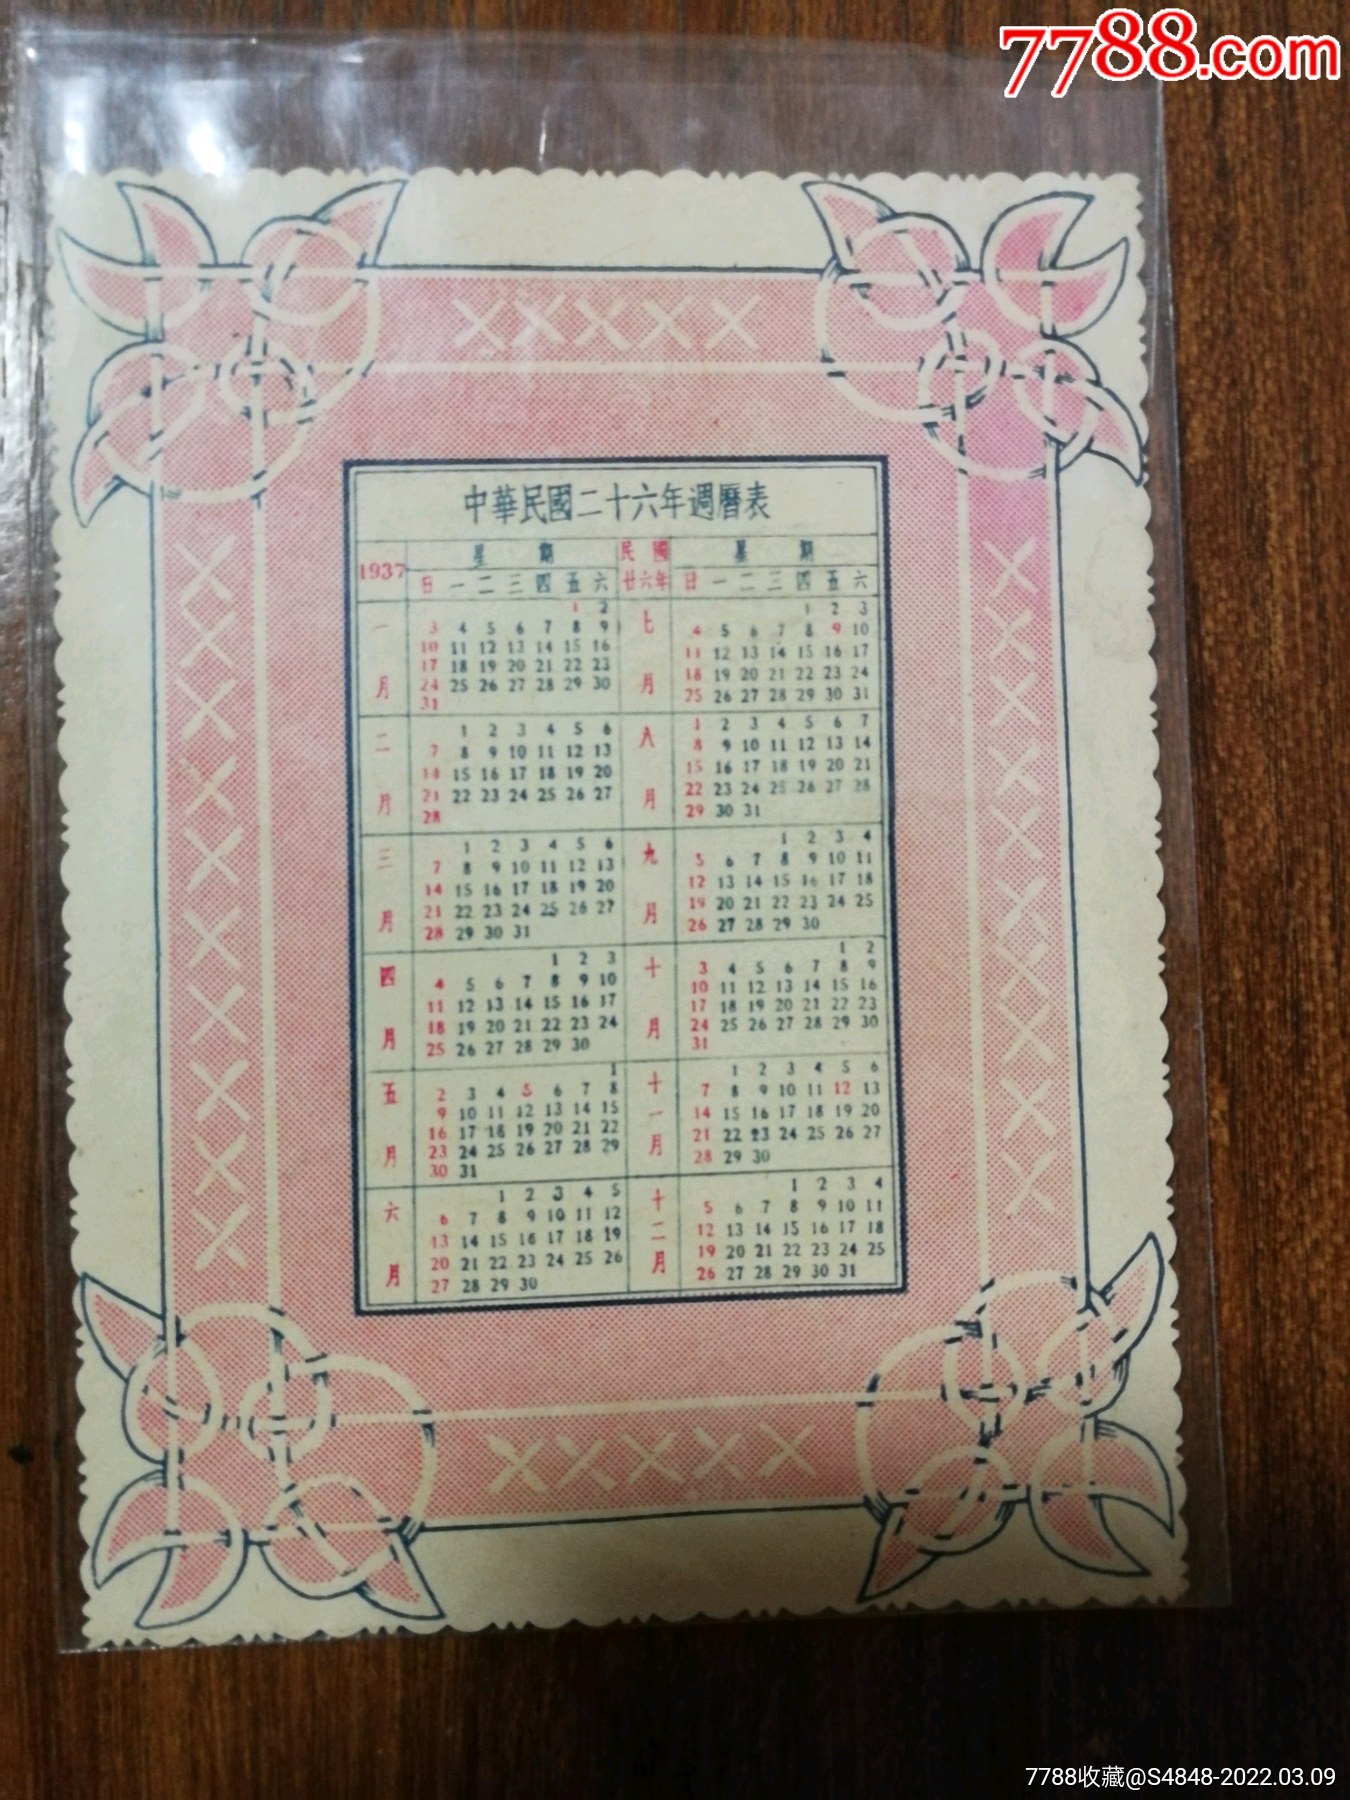 7788.com
中華民國二十六年週曆表
1937 星期 民國廿六年 星期
日 一 二 三 四 五 六 日 一 二 三 四 五 六
一月
1 2
3 4 5 6 7 8 9
10 11 12 13 14 15 16
17 18 19 20 21 22 23
24 25 26 27 28 29 30
31
二月
1 2 3 4 5 6
7 8 9 10 11 12 13
14 15 16 17 18 19 20
21 22 23 24 25 26 27
28
三月
1 2 3 4 5 6
7 8 9 10 11 12 13
14 15 16 17 18 19 20
21 22 23 24 25 26 27
28 29 30 31
四月
1 2 3
4 5 6 7 8 9 10
11 12 13 14 15 16 17
18 19 20 21 22 23 24
25 26 27 28 29 30
五月
1
2 3 4 5 6 7 8
9 10 11 12 13 14 15
16 17 18 19 20 21 22
23 24 25 26 27 28 29
30 31
六月
1 2 3 4 5
6 7 8 9 10 11 12
13 14 15 16 17 18 19
20 21 22 23 24 25 26
27 28 29 30
七月
1 2 3
4 5 6 7 8 9 10
11 12 13 14 15 16 17
18 19 20 21 22 23 24
25 26 27 28 29 30 31
八月
1 2 3 4 5 6 7
8 9 10 11 12 13 14
15 16 17 18 19 20 21
22 23 24 25 26 27 28
29 30 31
九月
1 2 3 4
5 6 7 8 9 10 11
12 13 14 15 16 17 18
19 20 21 22 23 24 25
26 27 28 29 30
十月
1 2
3 4 5 6 7 8 9
10 11 12 13 14 15 16
17 18 19 20 21 22 23
24 25 26 27 28 29 30
31
十一月
1 2 3 4 5 6
7 8 9 10 11 12 13
14 15 16 17 18 19 20
21 22 23 24 25 26 27
28 29 30
十二月
1 2 3 4
5 6 7 8 9 10 11
12 13 14 15 16 17 18
19 20 21 22 23 24 25
26 27 28 29 30 31
7788收藏@S4848-2022.03.09